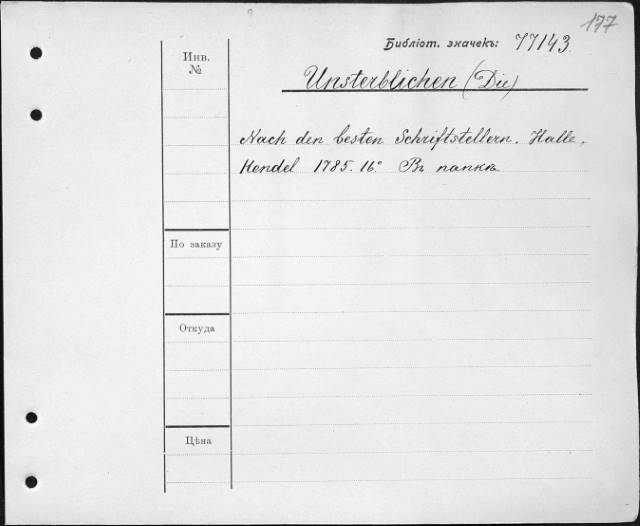 177
Библіот. значекъ: 77143
Инв.
№
Unsterblichen (Die)
Nach den besten Schriftstellern. Halle,
Hendel 1785. 16° Въ папкѣ
По заказу
Откуда
Цѣна